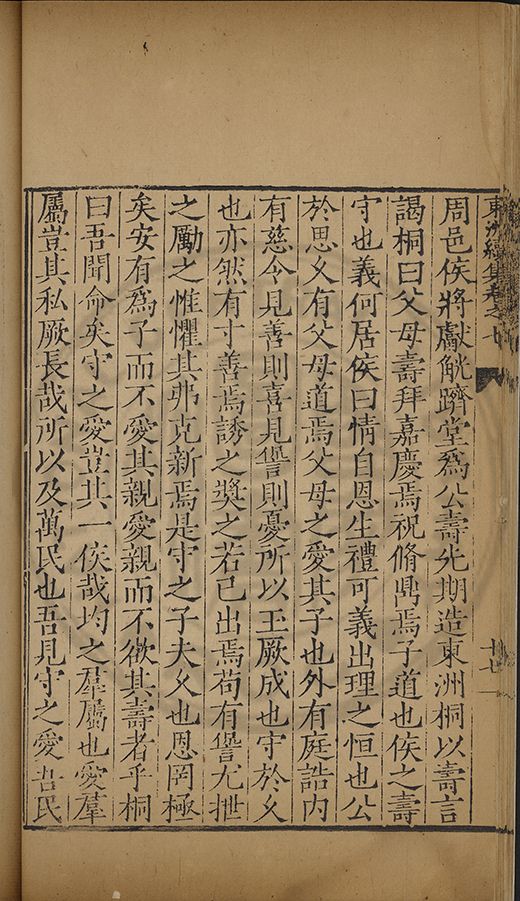 東洲續集卷之七
周邑侯將獻觥躋堂爲公壽先期造東洲桐以壽言
謁桐曰父母壽拜嘉慶焉祝脩鼎焉子道也侯之壽
守也義何居侯曰情自恩生禮可義出理之恒也公
於思乂有父母道焉父母之愛其子也外有庭誥内
有慈令見善則喜見諐則憂所以玉厥成也守於乂
也亦然有寸善焉誘之奬之若己出焉苟有諐尤抴
之勵之惟懼其弗克新焉是守之子夫乂也恩罔極
矣安有爲子而不愛其親愛親而不欲其壽者乎桐
曰吾聞命矣守之愛豈其一侯哉均之羣屬也愛羣
屬豈其私厥長哉所以及萬民也吾見守之愛吾民